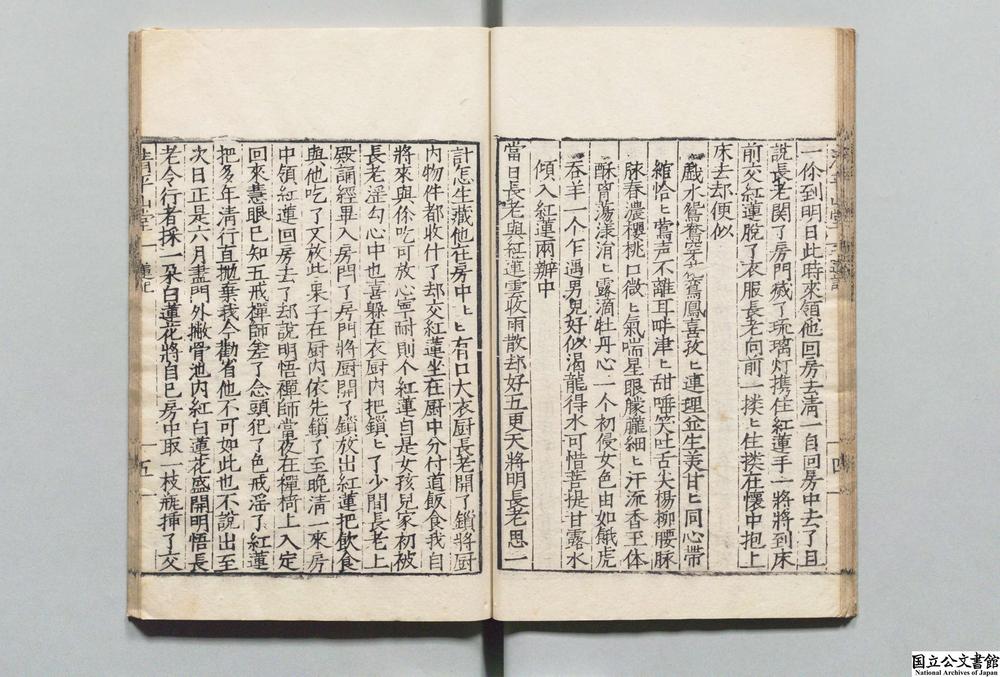 一你到明日此時來領他回房去清一自回房中去了且
說長老関了房門㓕了琉璃灯携住紅蓮手一將將到床
前交紅蓮脫了衣服長老向前一摟匕住摟在懷中抱上
床去却便似
戲水鴛鴦穿花鸞鳳喜孜匕連理並生美甘匕同心帶
綰恰匕鶯声不離耳畔津匕甜唾笑吐舌尖楊柳腰脉
脉春濃櫻桃口微匕氣喘星眼朦朧細匕汗流香玉体
酥胷蕩漾涓匕露滴牡丹心一个初侵女色由如餓虎
吞羊一个乍遇男兒好似渴龍得水可惜菩提甘露水
傾入紅蓮兩瓣中
當日長老與紅蓮雲收雨散却好五更天將明長老思一
計怎生藏他在房中匕匕有口大衣厨長老開了鎖將厨
内物件都收什了却交紅蓮坐在厨中分付道飲食我自
將來與你吃可放心寧耐則个紅蓮自是女孩兒家初被
長老淫勾心中也喜躲在衣厨内把鎖匕了少間長老上
殿誦經畢入房閂了房門將厨開了鎖放出紅蓮把飲食
與他吃了又放些果子在厨内依先鎖了至晚清一來房
中領紅蓮回房去了却說明悟禪師當夜在禪椅上入定
回來慧眼已知五戒禪師差了念頭犯了色戒滛了紅蓮
把多年清行直抛棄我今勸省他不可如此也不說出至
次日正是六月盡門外撇骨池内紅白蓮花盛開明悟長
老令行者採一朵白蓮花將自已房中取一枝瓶揷了交
清平山堂 蓮記
五
四
国立公文書館
National Archives of Japan